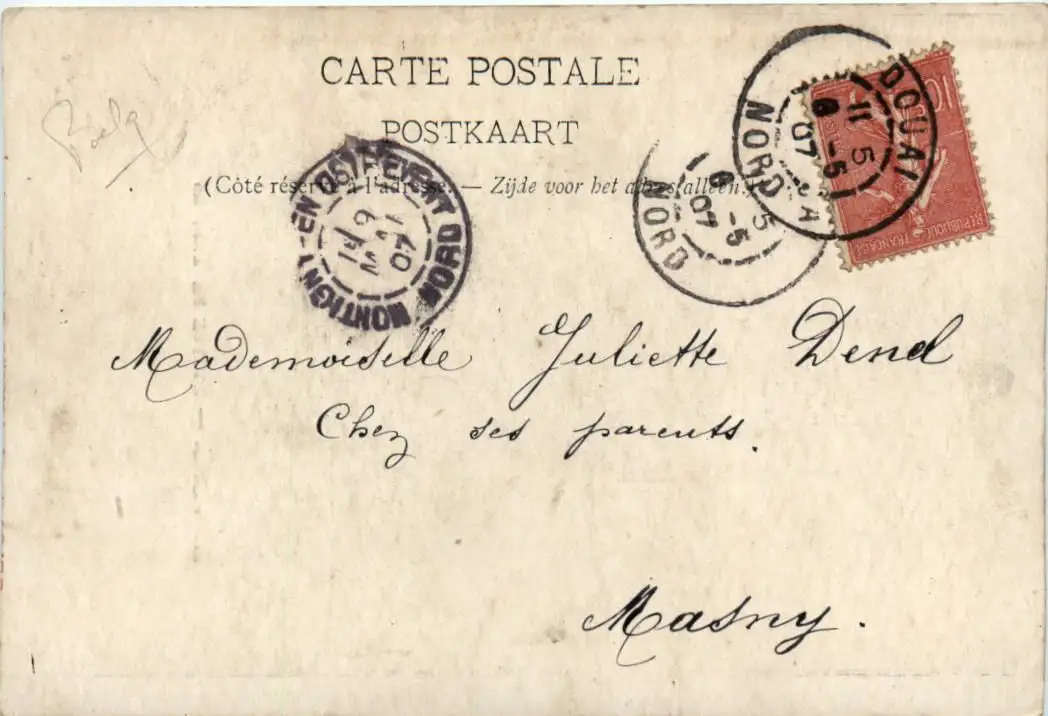 CARTE POSTALE
POSTKAART
(Côté réservé à l'adresse. — Zijde voor het adres alleen.)
Belg
MONTIGNY-EN-OSTREVENT NORD
6
07
DOUAI NORD
11 5
6 -5
07
NORD
5
6 -5
07
10
REPUBLIQUE FRANÇAISE
Mademoiselle Juliette Denel
Chez ses parents.
Masny.